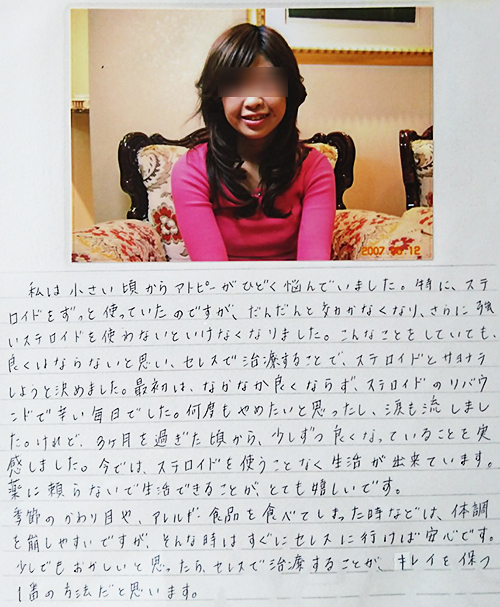 2007.10.12
私は小さい頃からアトピーがひどく悩んでいました。特に、ステ
ロイドをずっと使っていたのですが、だんだんと効かなくなり、さらに強
いステロイドを使わないといけなくなりました。こんなことをしていても、
良くはならないと思い、セレスで治療することで、ステロイドとサヨナラ
しようと決めました。最初は、なかなか良くならず、ステロイドのリバウ
ンドで辛い毎日でした。何度もやめたいと思ったし、涙も流しまし
た。けれど、3ヶ月を過ぎた頃から、少しずつ良くなっていることを実
感しました。今では、ステロイドを使うことなく生活が出来ています。
薬に頼らないで生活できることが、とても嬉しいです。
季節のかわり目や、アレルギー食品を食べてしまった時などは、体調
を崩しやすいですが、そんな時はすぐにセレスに行けば安心です。
少しでもおかしいと思ったら、セレスで治療することが、キレイを保つ
1番の方法だと思います。